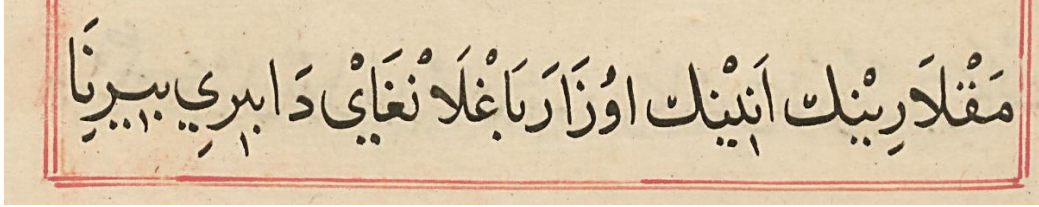 مَقْلَارِيْنِكْ اَنِيْنِكْ اوُزَارَ بَاغْلَانْغَايْ دَا بِيرِي بِيرِنَا